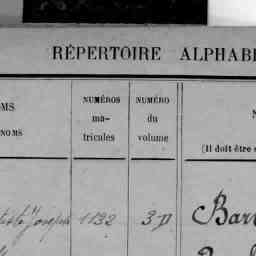 RÉPERTOIRE ALPHABÉ
OMS
NOMS
NUMÉROS
ma-
tricules
NUMÉRO
du
volume
N
(Il doit être
Joseph 1132 3-D Bar